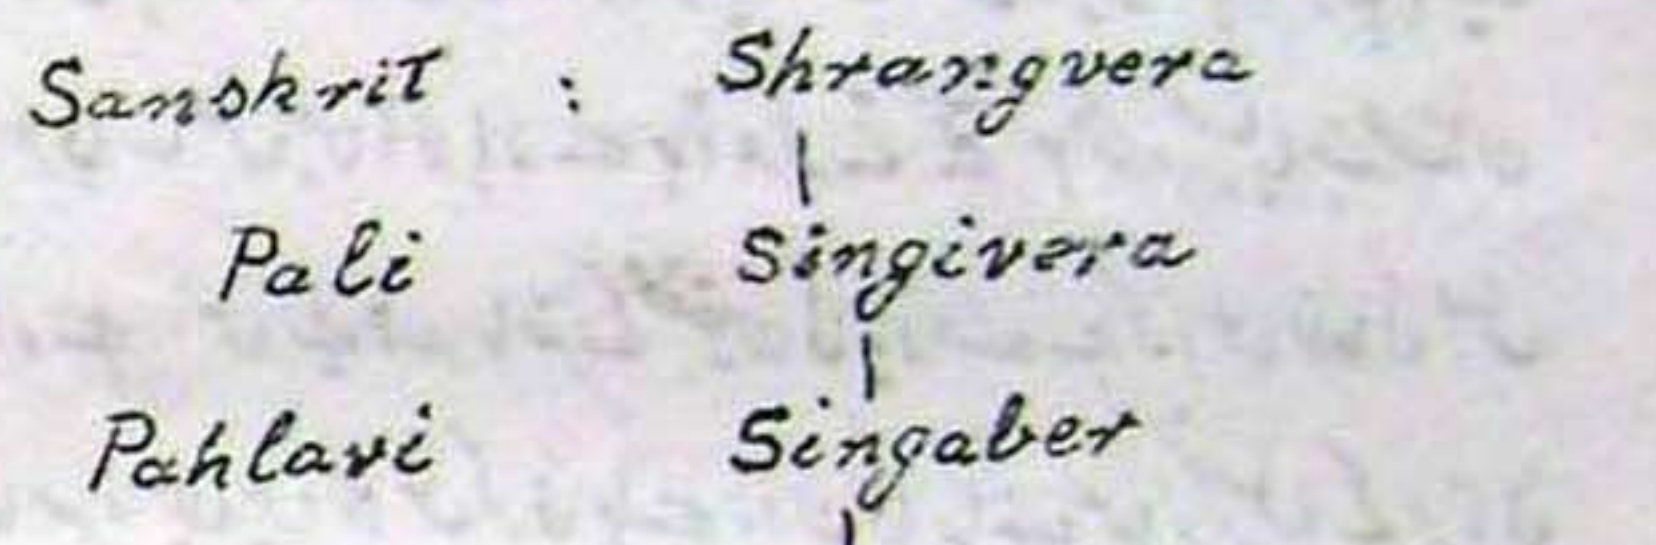 Sanskrit : Shrangvera
Pali Singivera
Pahlavi Singaber